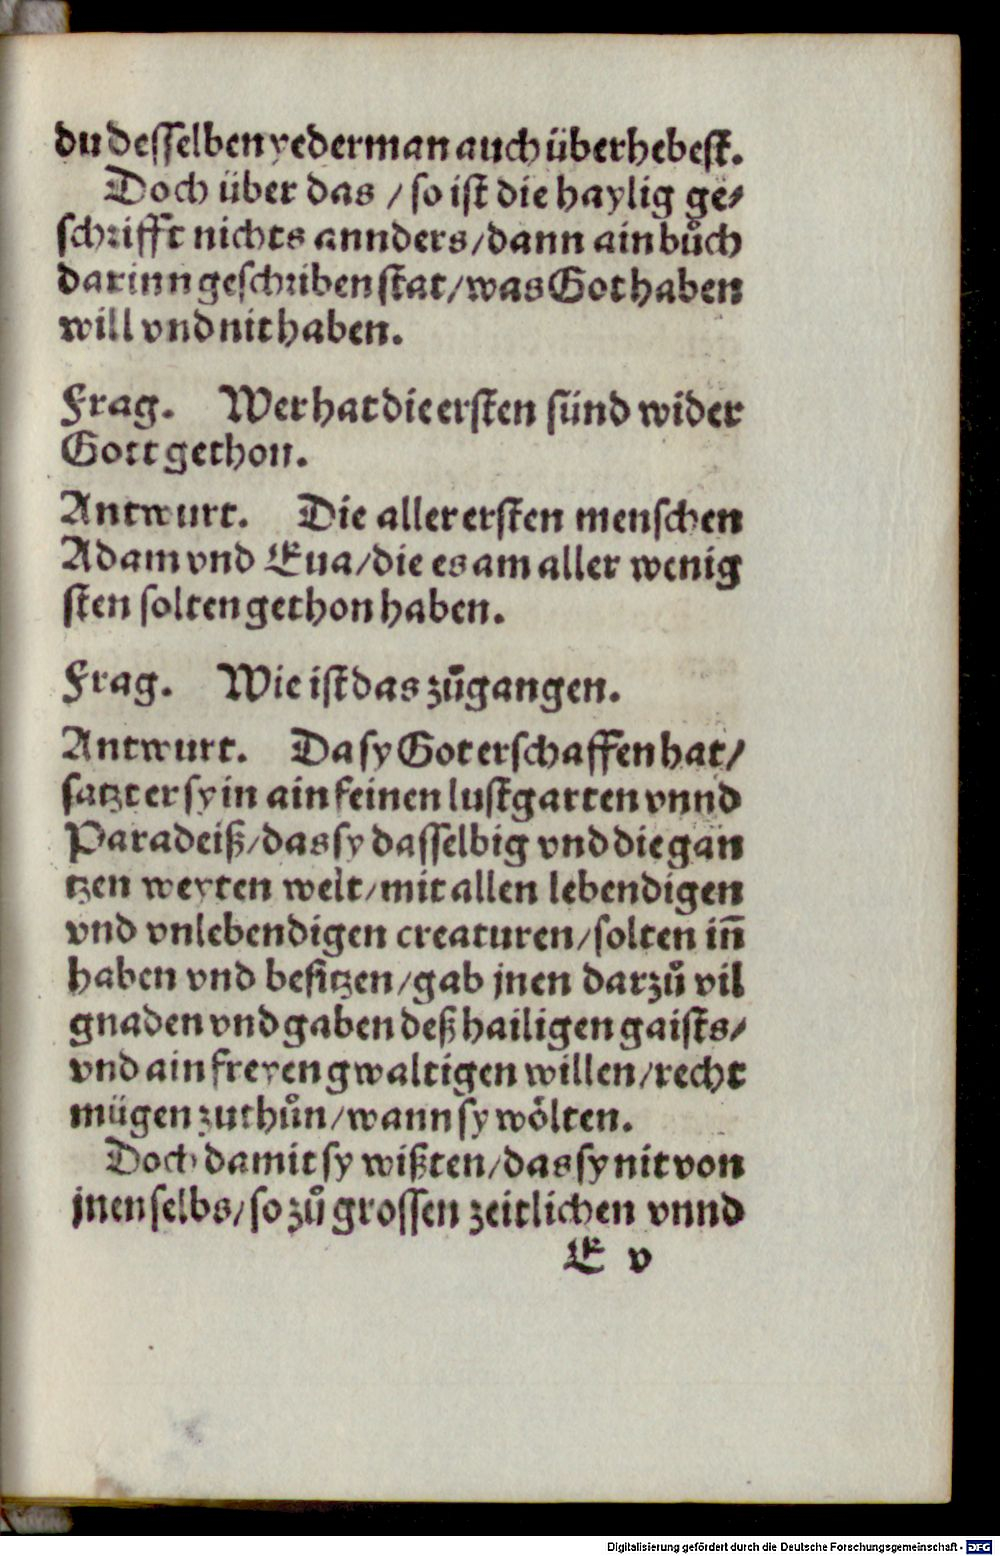 du desselben yederman auch überhebest.
Doch über das / so ist die haylig ge⸗
schrifft nichts annders / dann ain bůch
darinn geschriben stat / was Got haben
will vnd nit haben.
Frag. Wer hat die ersten sünd wider
Gott gethon.
Antwurt. Die aller ersten menschen
Adam vnd Eua / die es am aller wenig
sten solten gethon haben.
Frag. Wie ist das zůgangen.
Antwurt. Da sy Got erschaffen hat /
satzt er sy in ain feinen lustgarten vnnd
Paradeiß / das sy dasselbig vnd die gan
tzen weyten welt / mit allen lebendigen
vnd vnlebendigen creaturen / solten iñ
haben vnd besitzen / gab jnen darzů vil
gnaden vnd gaben deß hailigen gaists /
vnd ain freyen gwaltigen willen / recht
mügen zuthůn / wann sy wölten.
Doch damit sy wißten / das sy nit von
jnen selbs / so zů grossen zeitlichen vnnd
E v
Digitalisierung gefördert durch die Deutsche Forschungsgemeinschaft - DFG